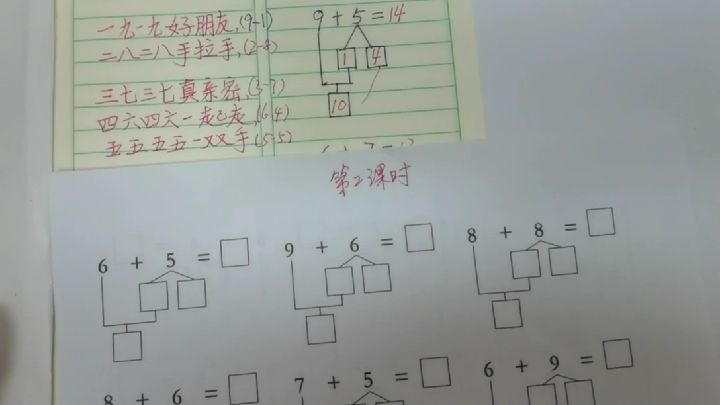 一九一九好朋友,(9-1)
二八二八手拉手,(2-8)
三七三七真亲密,(3-7)
四六四六一起走,(6-4)
五五五五一双手(5-5)
9+5=14
1 4
10
第2课时
6 + 5 = □
9 + 6 = □
8 + 8 = □
8 + 6 = □
7 + 5 = □
6 + 9 = □